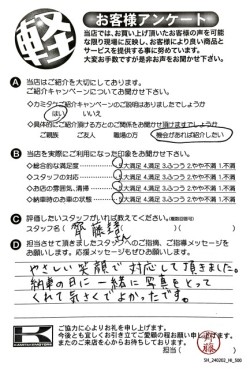 軽
お客様アンケート
当店では、お買い上げ頂いたお客様の声を可能
な限り現場に反映し、お客様により良い商品と
サービスを提供する事に努めています。
大変お手数ですが是非お声をお聞かせ下さい。
A 当店はご紹介を大切にしております。
ご紹介キャンペーンについてお聞かせ下さい。
◇カミタケご紹介キャンペーンのご説明はありましたでしょうか
はい いいえ
◇具体的にご紹介頂ける方とのご関係をお聞かせ頂けますでしょうか
ご親族 ご友人 職場の方 機会があれば紹介したい
B 当店を実際にご利用になった印象をお聞かせ下さい。
◇総合的な満足度 5.大満足 4.満足 3.ふつう 2.やや不満 1.不満
◇スタッフの対応 5.大満足 4.満足 3.ふつう 2.やや不満 1.不満
◇お店の雰囲気、清掃 5.大満足 4.満足 3.ふつう 2.やや不満 1.不満
◇納車時のお車の状態 5.大満足 4.満足 3.ふつう 2.やや不満 1.不満
C 評価したいスタッフがいれば教えてください。(複数回答可)
スタッフ名( 齊藤 )( )
D 担当させて頂きましたスタッフへのご指摘、ご指導メッセージを
お願いします。応援メッセージもぜひお願いします。
やさしい笑顔で対応して頂きました。
納車の日に一緒に写真をとって
くれて気さくでよかったです。
ご協力に心よりお礼を申し上げます。
今後とも宜しくお引き立てご愛顧の程お願い申し上げます。
またのご来店を心からお待ちしております。
担当( 斉藤 )
SH_240202_HI_500